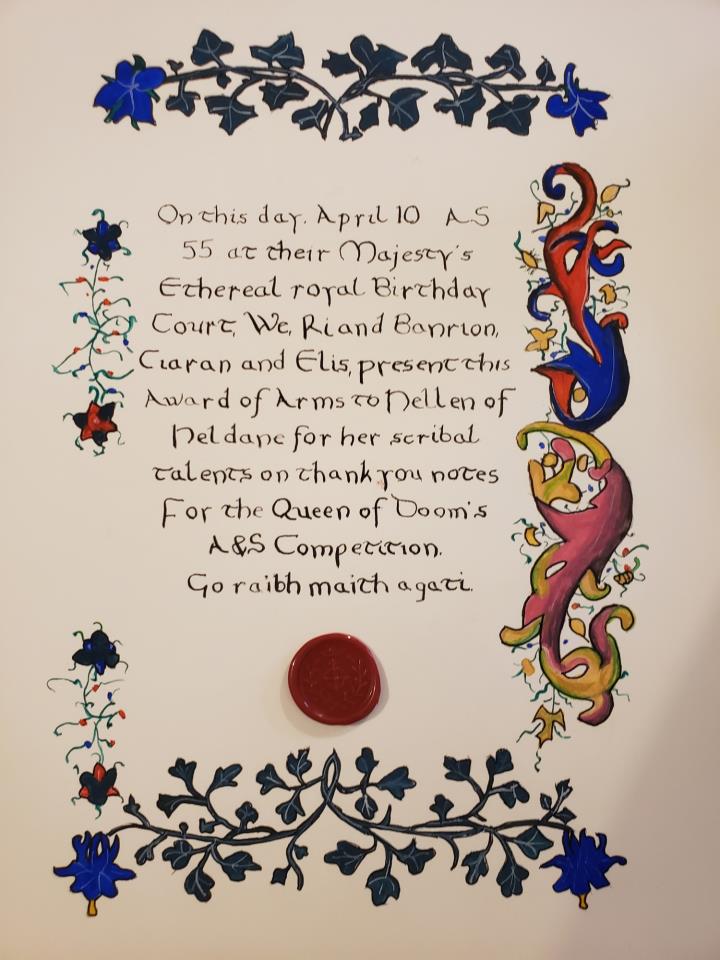 On this day, April 10 AS
55 at their Majesty's
Ethereal royal Birthday
Court, We, Ri and Banrion,
Ciaran and Elis, present this
Award of Arms to Hellen of
heldane for her scribal
talents on thank you notes
For the Queen of Doom's
A&S Competition.
Go raibh maith agati.